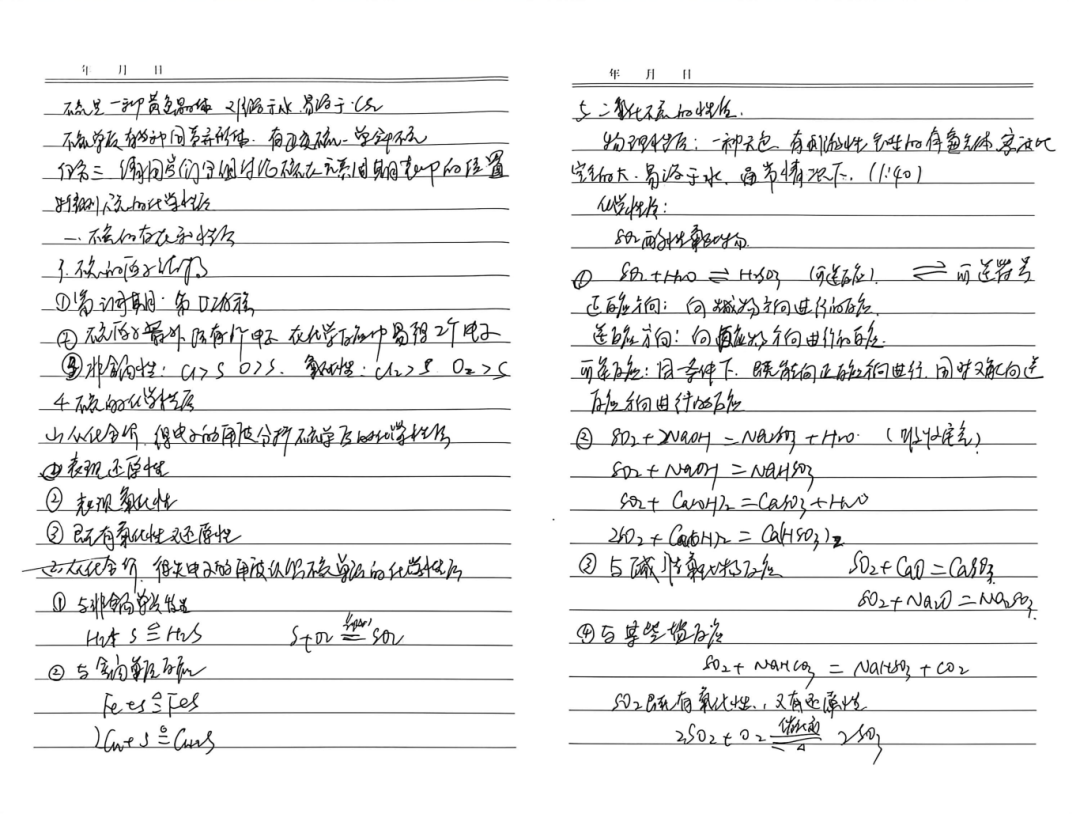 年 月 日
硫是一种黄色晶体 不溶于水.易溶于CS₂
硫单质有多种同素异形体.有 单斜硫
任务三 请同学们分组讨论硫在元素周期表中的位置
的化学性质
一.硫的存在和性质
3.硫的原子结构
①第三周期.第ⅥA族
②硫原子最外层有6个电子 在化学反应中易得2个电子
③非金属性:Cl>S O>S. 氧化性:Cl₂>S O₂>S
4.硫的化学性质
(1)从化合价.得电子的角度分析硫单质的化学性质
①表现还原性
②表现氧化性
③既有氧化性又还原性
(2)从化合价.得失电子的角度认识硫单质的化学性质
①与非金属单质
H₂+S≜H₂S S+O₂ 点燃= SO₂
②与金属单质反应
Fe+S≜FeS
2Cu+S≜Cu₂S
年 月 日
5.二氧化硫的性质.
物理性质:一种无色 有刺激性气味的有毒气体.密度比
空气的大.易溶于水.通常情况下.(1:40)
化学性质:
SO₂酸性氧化物.
① SO₂+H₂O⇌H₂SO₃ (可逆反应). ⇌可逆符号
正反应方向:向 方向进行的反应.
逆反应方向:向 方向进行的反应.
可逆反应:同一条件下.既能向正反应方向进行.同时又能向逆
反应方向进行的反应
② SO₂+2NaOH=Na₂SO₃+H₂O.(吸收尾气)
SO₂+NaOH=NaHSO₃
SO₂+Ca(OH)₂=CaSO₃+H₂O
2SO₂+Ca(OH)₂=Ca(HSO₃)₂
③与碱性氧化物反应 SO₂+CaO=CaSO₃
SO₂+Na₂O=Na₂SO₃
④与某些盐反应
SO₂+NaHCO₃=NaHSO₃+CO₂
SO₂既有氧化性.,又有还原性
2SO₂+O₂ 催化剂⇌△ 2SO₃